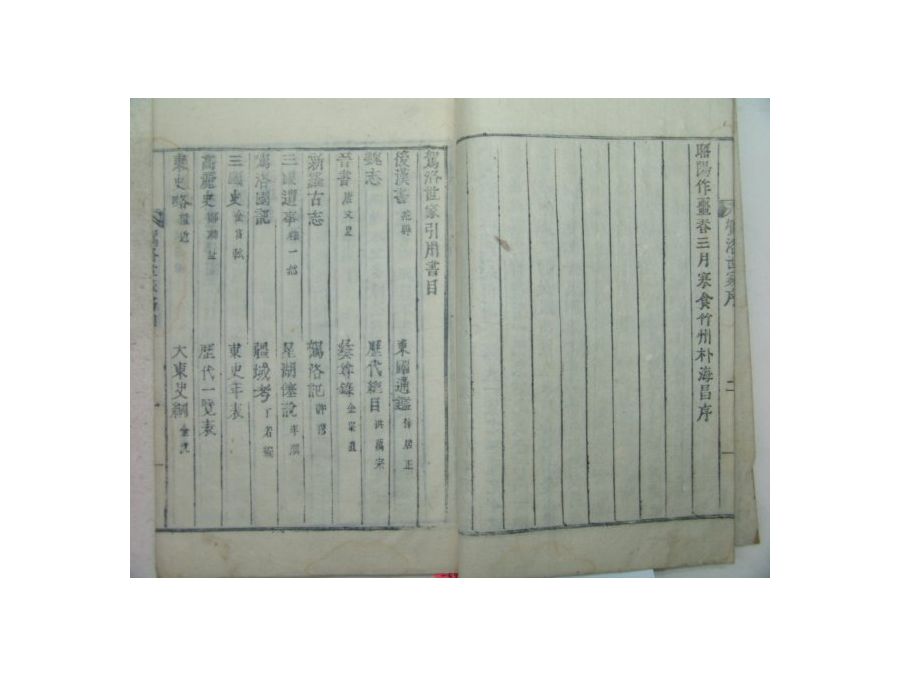 駕洛世家序
二
昭陽作噩春三月寒食竹州朴海昌序
駕洛世家引用書目
後漢書 范曄 東國通鑑 徐居正
魏志 歷代總目 洪萬宗
晉書 唐文皇 彝尊錄 金宗直
新羅古志 駕洛記 許薰
三國遺事 僧一然 星湖僿說 李瀷
駕洛國記 疆域考 丁若鏞
三國史 金富軾 東史年表
高麗史 鄭麟趾 歷代一覽表
東史略 權近 大東史綱 金洸